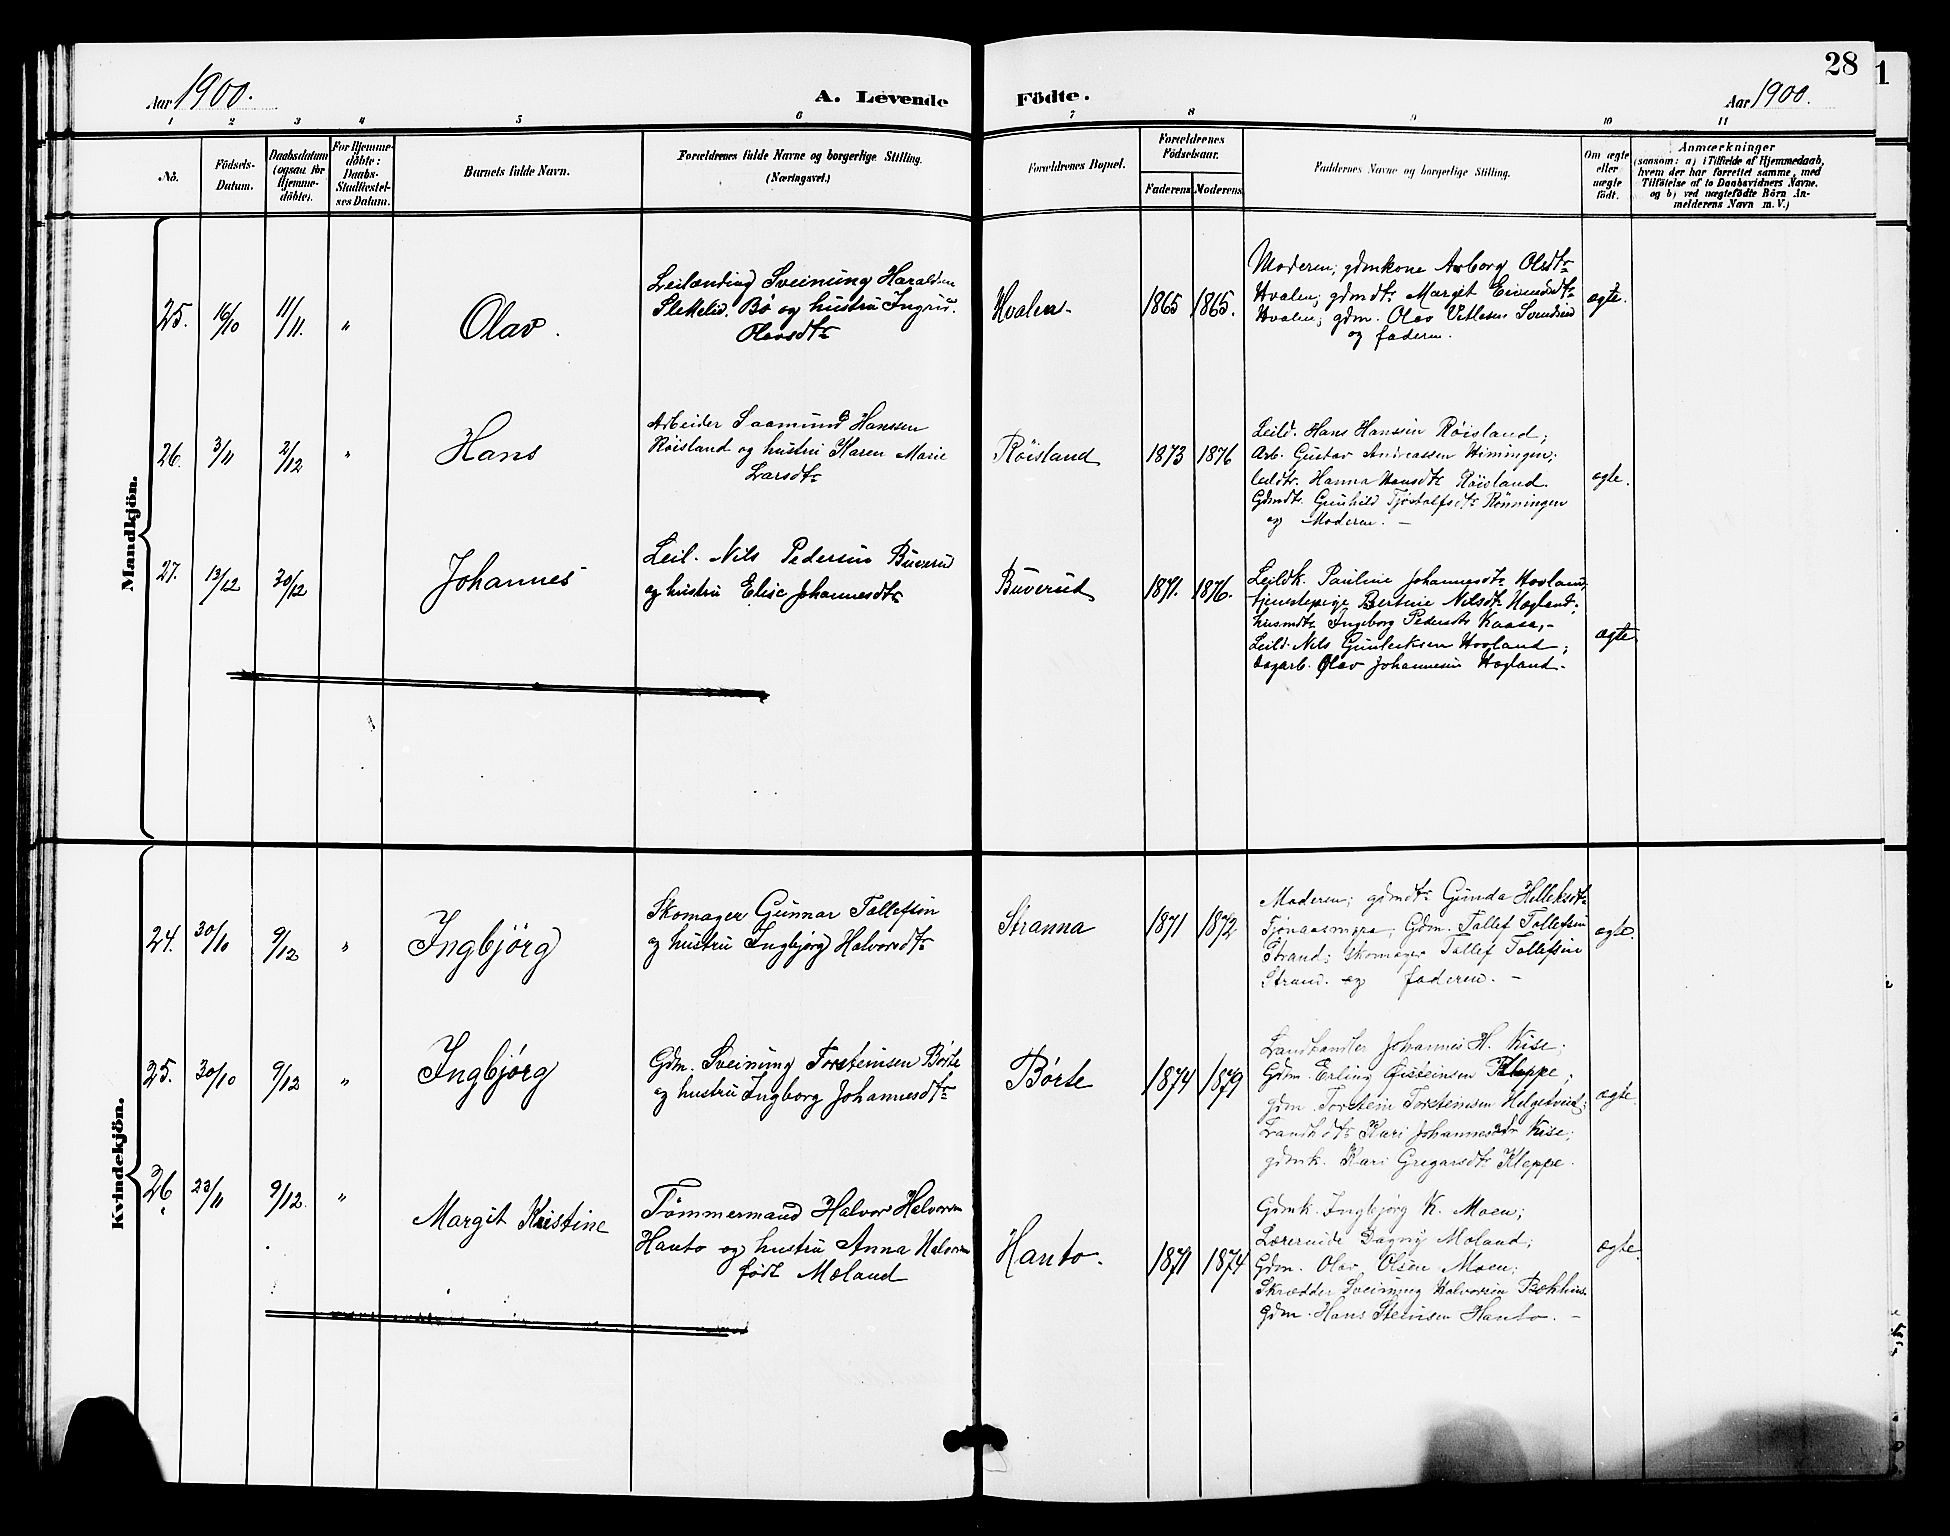 28
1
Aar 1900.
A. Levende Födte.
Aar 1900.
1 2 3 4 5 6 7 8 9 10 11
No.
Födsels-
Datum.
Daabsdatum
(ogsaa for
Hjemme-
döbte).
For Hjemme-
döbte:
Daabs-
Stadfæstel-
ses Datum.
Barnets fulde Navn.
Forældrenes fulde Navne og borgerlige Stilling.
(Næringsvei.)
Forældrenes Bopæl.
Forældrenes
Födselsaar.
Faderens Moderens
Faddernes Navne og borgerlige Stilling.
Om ægte
eller
uægte
födt.
Anmærkninger
(saasom: a) i Tilfælde af Hjemmedaab,
hvem der har forrettet samme, med
Tilföielse af to Daabsvidners Navne.
og b) ved uægtefödte Börn An-
melderens Navn m. V.)
Mandkjön.
25. 16/10 11/11. "
Olav.
Leilænding Sveinung Haraldsen
Slettelid. Bø og hustru Ingrid.
Olavsdtr
Hvalen.
1865 1865.
Moderen; gdmkone Aasborg Olsdtr
Hvalen; gdmdtr Margit Eivindsdtr
Hvalen; gdm. Olav Vetlesen
og faderen.
ægte.
26. 3/11 2/12 "
Hans
Arbeider Saamund Hanssen
Røisland og hustru Karen Marie
Larsdtr
Røisland
1873 1876
Leild. Hans Hanssen Røisland;
Arb. Gustav Andreassen
leildtr. Hanna Hansdtr Røisland.
Gdmdtr. Gunhild Tjøstolfsdtr Rønningen
og Moderen. –
ægte.
27. 13/12 30/12
Johannes
Leil. Nils Pedersen Buverud
og hustru Elise Johannesdtr
Buverud
1871. 1876.
Leildk. Pauline Johannesdtr Hovland;
tjenestepige Bertine Nilsdtr Hogland;
husmdtr Ingeborg Pedersdtr Kaasa; –
Leild. Nils Gunleiksen Hogland;
dagarb. Olav Johannesen Hogland.
ægte
Kvindekjön.
24. 30/10 9/12 "
Ingbjörg
Skomager Gunnar Tallefsen
og hustru Ingbjørg Halvorsdtr
Stranna
1871 1872
Moderen; gdmdtr Gunda Helleksdtr
Tjønaasmyra; Gdm. Tallef Tallefsen
Strand; skomager Tallef Tallefsen
Strand. og faderen. –
ægte.
25. 30/10 9/12 "
Ingbjørg
Gdm. Sveinung Torsteinsen Børte
og hustru Ingborg Johannesdtr
Børte
1874 1879
Landhandler Johannes H. Kise;
Gdm. Erling Øisteinsen Kleppe;
gdm. Torstein Torsteinsen Helgetveid;
Landhdtr Kari Johannesdtr Kise;
gdmk. Kari Gregarsdtr Kleppe.
ægte.
26. 23/11 9/12. "
Margit Kristine
Tømmermand Halvor Halvorsen
Hauto og hustru Anna Halvorsen
født Moland
Hauto.
1871 1874
Gdmk. Ingbjørg K. Moen;
Lærerinde Dagny Moland;
Gdm. Olav Olsen Moen;
Skrædder Sveinung Halvorsen Bækhus
Gdm. Hans Steinsen Hauto. –
ægte.